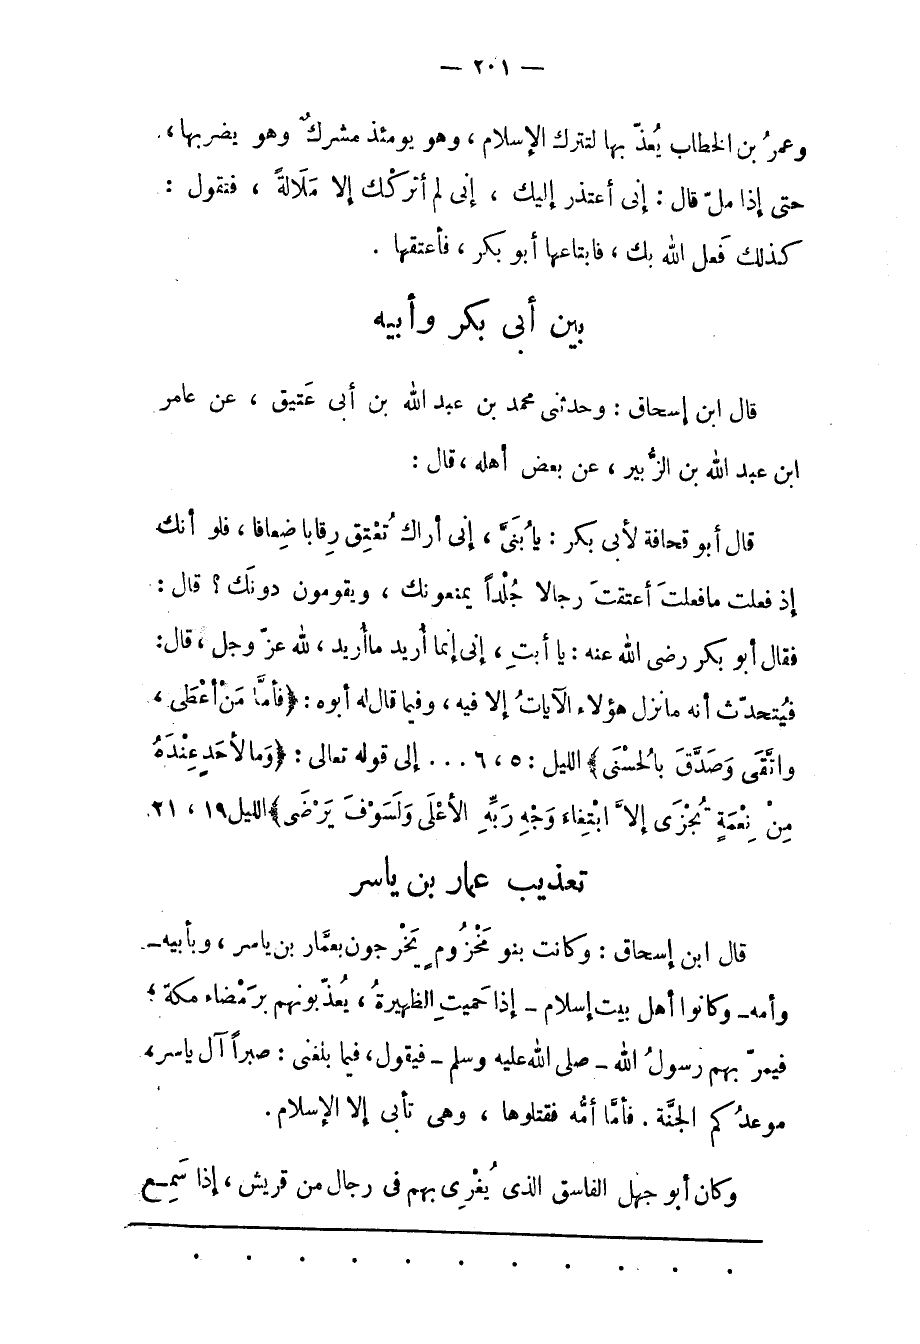 — ٢٠١ —
وعمرُ بن الخطاب يُعذّ بها لتترك الإسلام ، وهو يومئذ مشركٌ وهو يضربها ،
حتى إذا ملّ قال : إنى أعتذر إليك ، إنى لم أترُكك إلا مَلَالةً ، فتقول :
كذلك فَعل الله بك ، فابتاعها أبو بكر ، فأعتقها .
بين أبى بكر وأبيه
قال ابن إسحاق : وحدثنى محمد بن عبد الله بن أبى عَتيق ، عن عامر
ابن عبد الله بن الزُّبير ، عن بعض أهله ، قال :
قال أبو قحافة لأبى بكر : يا بُنَىَّ ، إنى أراك تُعْتِق رِقابا ضِعافا ، فلو أنك
إذ فعلت مافعلتَ أعتقتَ رجالا جُلْداً يمنعونك ، ويقومون دونَك ؟ قال :
فقال أبو بكر رضى الله عنه : يا أبتِ ، إنى إنما أُريد ماأُريد ، لله عزّ وجل ، قال :
فيُتحدّث أنه مانزل هؤلاء الآياتُ إلا فيه ، وفيما قال له أبوه : ﴿فأمَّا مَنْ أعْطَى ،
واتَّقَى وَصَدَّقَ بالحُسْنَى﴾ الليل : ٥ ، ٦ ... إلى قوله تعالى : ﴿وَما لأحَدٍ عِنْدَهُ
مِنْ نِعْمَةٍ تُجْزَى إلاَّ ابْتِغاء وَجْهِ رَبِّهِ الأعْلَى وَلَسَوْفَ يَرْضَى﴾ الليل ١٩ ، ٢١.
تعذيب عمار بن ياسر
قال ابن إسحاق : وكانت بنو مَخْزُومٍ يَخْرجون بعمَّار بن ياسر ، وبأبيه ــ
وأمه ــ وكانوا أهل بيت إسلام ــ إذا حَميتِ الظهيرةُ ، يُعذّبونهم برَمْضاء مكة ؛
فيمرّ بهم رسولُ الله ــ صلى الله عليه وسلم ــ فيقول ، فيما بلغنى : صبراً آل ياسر ،
موعدُكم الجنَّة . فأمَّا أمُّه فقتلوها ، وهى تأبى إلا الإسلام .
وكان أبو جهل الفاسق الذى يُغْرِى بهم فى رجال من قريش ، إذا سَمِـع